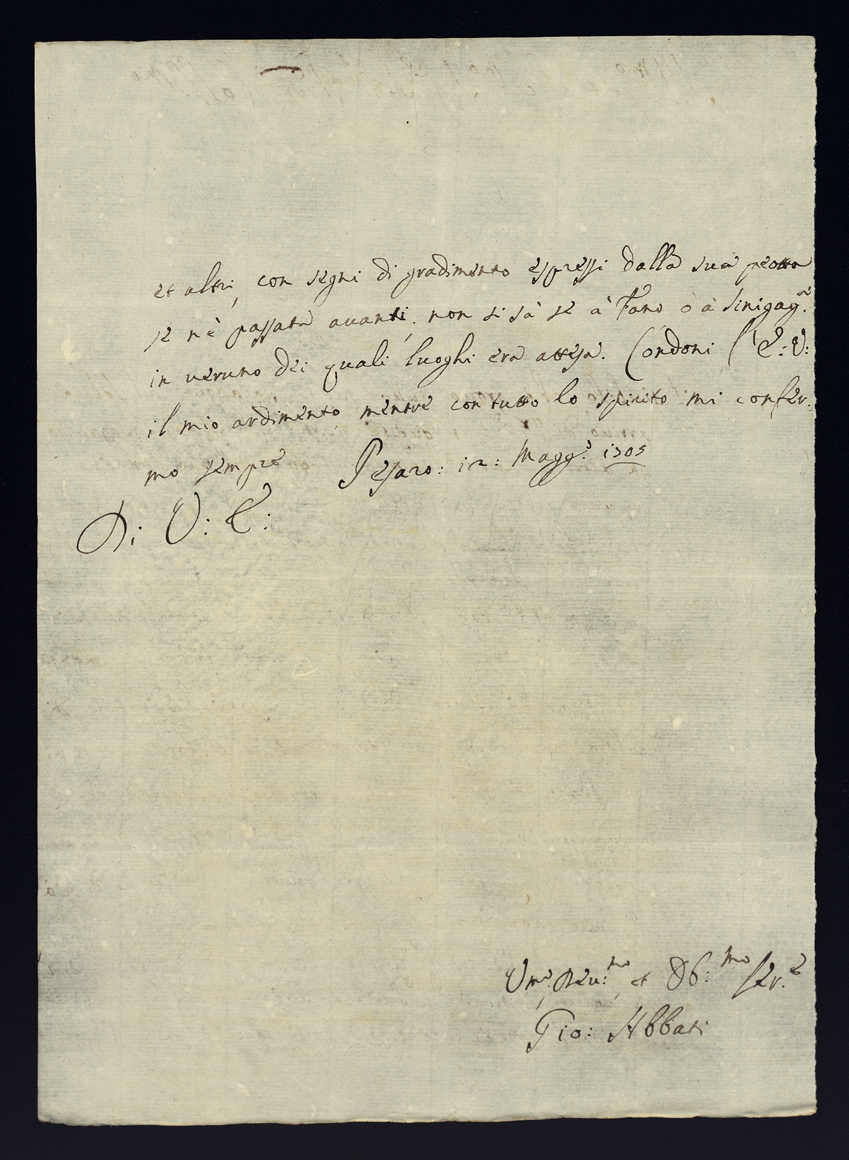 et altri, con segni di gradimento espressi dalla sua peotta
se n'è passata avanti, non si sà se à Fano ò à Sinigag.ª
in veruno dei quali luoghi era attesa. Condoni l'E: V:
il mio ardimento, mentre con tutto lo spirito mi confer:
mo sempre Pesaro: 12: Magg.º 1705
Di V: E:
Um.º Dev.mo, et Ob:mo Ser.e
Gio: Abbati